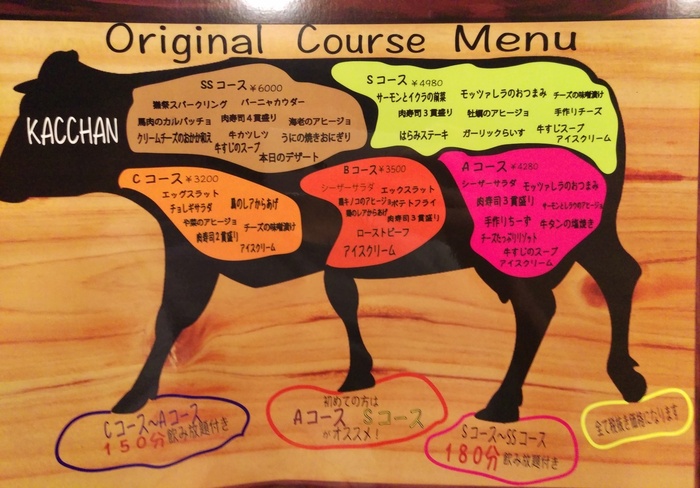 Original Course Menu
KACCHAN
SSコース ￥6000
獺祭スパークリング バーニャカウダー
馬肉のカルパッチョ 肉寿司4貫盛り 海老のアヒージョ
クリームチーズのおかか和え 牛カツレツ うにの焼きおにぎり
牛すじのスープ
本日のデザート
Sコース ￥4980
サーモンとイクラの前菜 モッツァレラのおつまみ チーズの味噌漬け
肉寿司3貫盛り 牡蠣のアヒージョ 手作りチーズ
はらみステーキ ガーリックらいす 牛すじスープ
アイスクリーム
Cコース ￥3200
エッグスラット
チョレギサラダ 鳥のレアからあげ
や菜のアヒージョ
肉寿司2貫盛り チーズの味噌漬け
アイスクリーム
Bコース ￥3500
シーザーサラダ エックスラット
鶏キノコのアヒージョ ポテトフライ
鶏のレアからあげ
肉寿司3貫盛り
ローストビーフ
アイスクリーム
Aコース ￥4280
シーザーサラダ モッツァレラのおつまみ
肉寿司3貫盛り サーモンとレタスのアヒージョ
手作りちーず 牛タンの塩焼き
チーズたっぷりリゾット
牛すじのスープ
アイスクリーム
Cコース〜Aコース
150分飲み放題付き
初めての方は
Aコース Sコース
がオススメ！
Sコース〜SSコース
180分飲み放題付き
全て税抜き価格になります